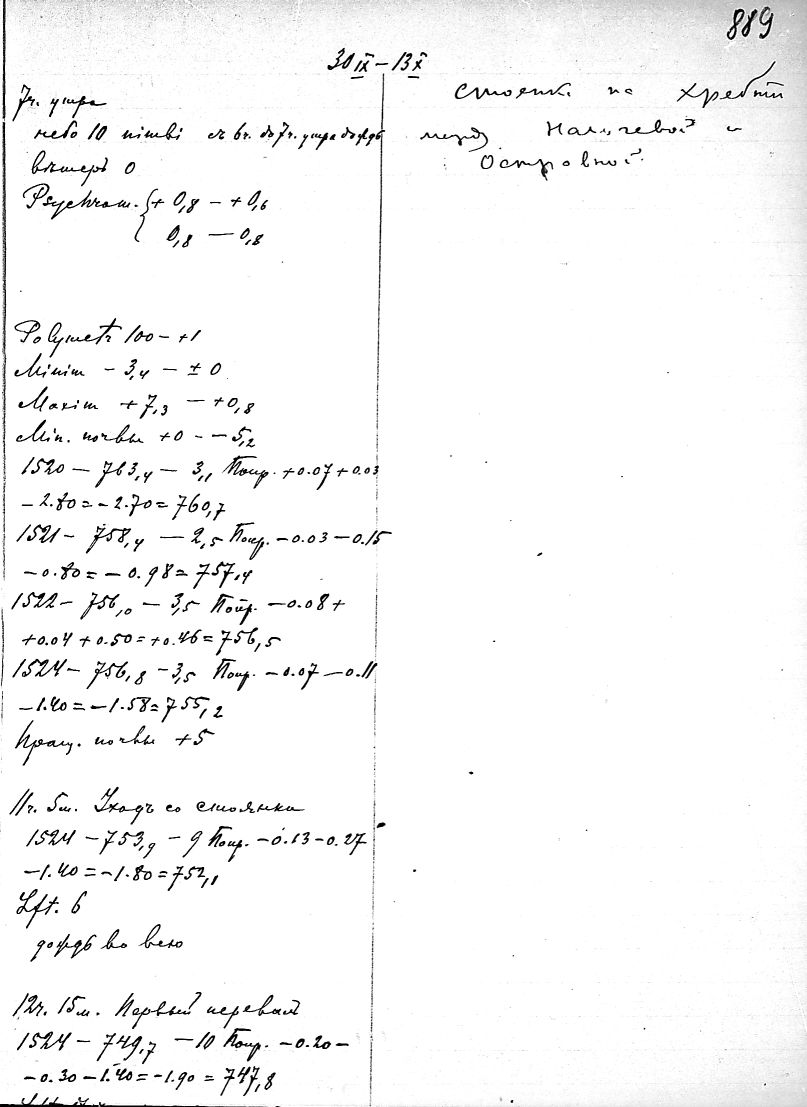 889
30 IX – 13 X
7ч. утра
небо 10 nimbi съ 6ч. до 7ч. утра дождь
вѣтеръ 0
Psychrom. { + 0,8 – + 0,6
0,8 – 0,8
Polymetr 100 – +1
Minim – 3,4 – ± 0
Maxim + 7,3 – +0,8
Min. почвы +0 – – 5,2
1520 – 763,4 – 3,1 Попр. +0.07 +0.03
–2.80 = –2.70 = 760,7
1521 – 758,4 – 2,5 Попр. –0.03 –0.15
–0.80 = –0.98 = 757,4
1522 – 756,0 – 3,5 Попр. –0.08 +
+0.04 +0.50 = +0.46 = 756,5
1524 – 756,8 – 3,5 Попр. –0.07 –0.11
–1.40 = –1.58 = 755,2
Пращ. почвы +5
11ч. 5м. Уходъ со стоянки
1524 – 753,9 – 9 Попр. –0.13 –0.27
–1.40 = –1.80 = 752,1
Lft. 6
дождь во всю
12ч. 15м. Первый перевалъ
1524 – 749,7 – 10 Попр. –0.20 –
–0.30 –1.40 = –1.90 = 747,8
стоянка на хребтѣ
между Налычевой и
Островной.